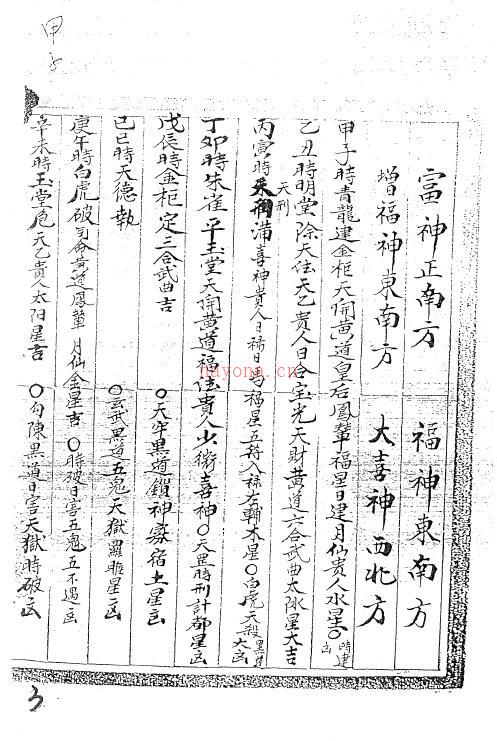 甲子
富神正南方 福神東南方
增福神東南方 大喜神西北方
甲子時青龍建金柜天開黃道皇后鳳輦福星日建月仙貴人水星〇時建凶
乙丑時明堂除天德天乙貴人日合宝光天財黃道六合武曲太阴星大吉
丙寅時天刑滿喜神貴人日祿日馬福星五符入祿左輔木星〇白虎天殺黑道大凶
丁卯時朱雀平玉堂天開黃道福德貴人少微喜神〇天兵時刑計都星凶
戊辰時金柜定三合武曲吉 〇天牢黑道鎖神寡宿土星凶
己巳時天德執 〇玄武黑道五鬼天獄羅睺星凶
庚午時白虎破司命黃道鳳輦月仙金星吉 〇時破日害五鬼五不遇凶
辛未時玉堂危天乙貴人太阳星吉 〇勾陳黑道日害天獄時破凶
nayona.cn
3